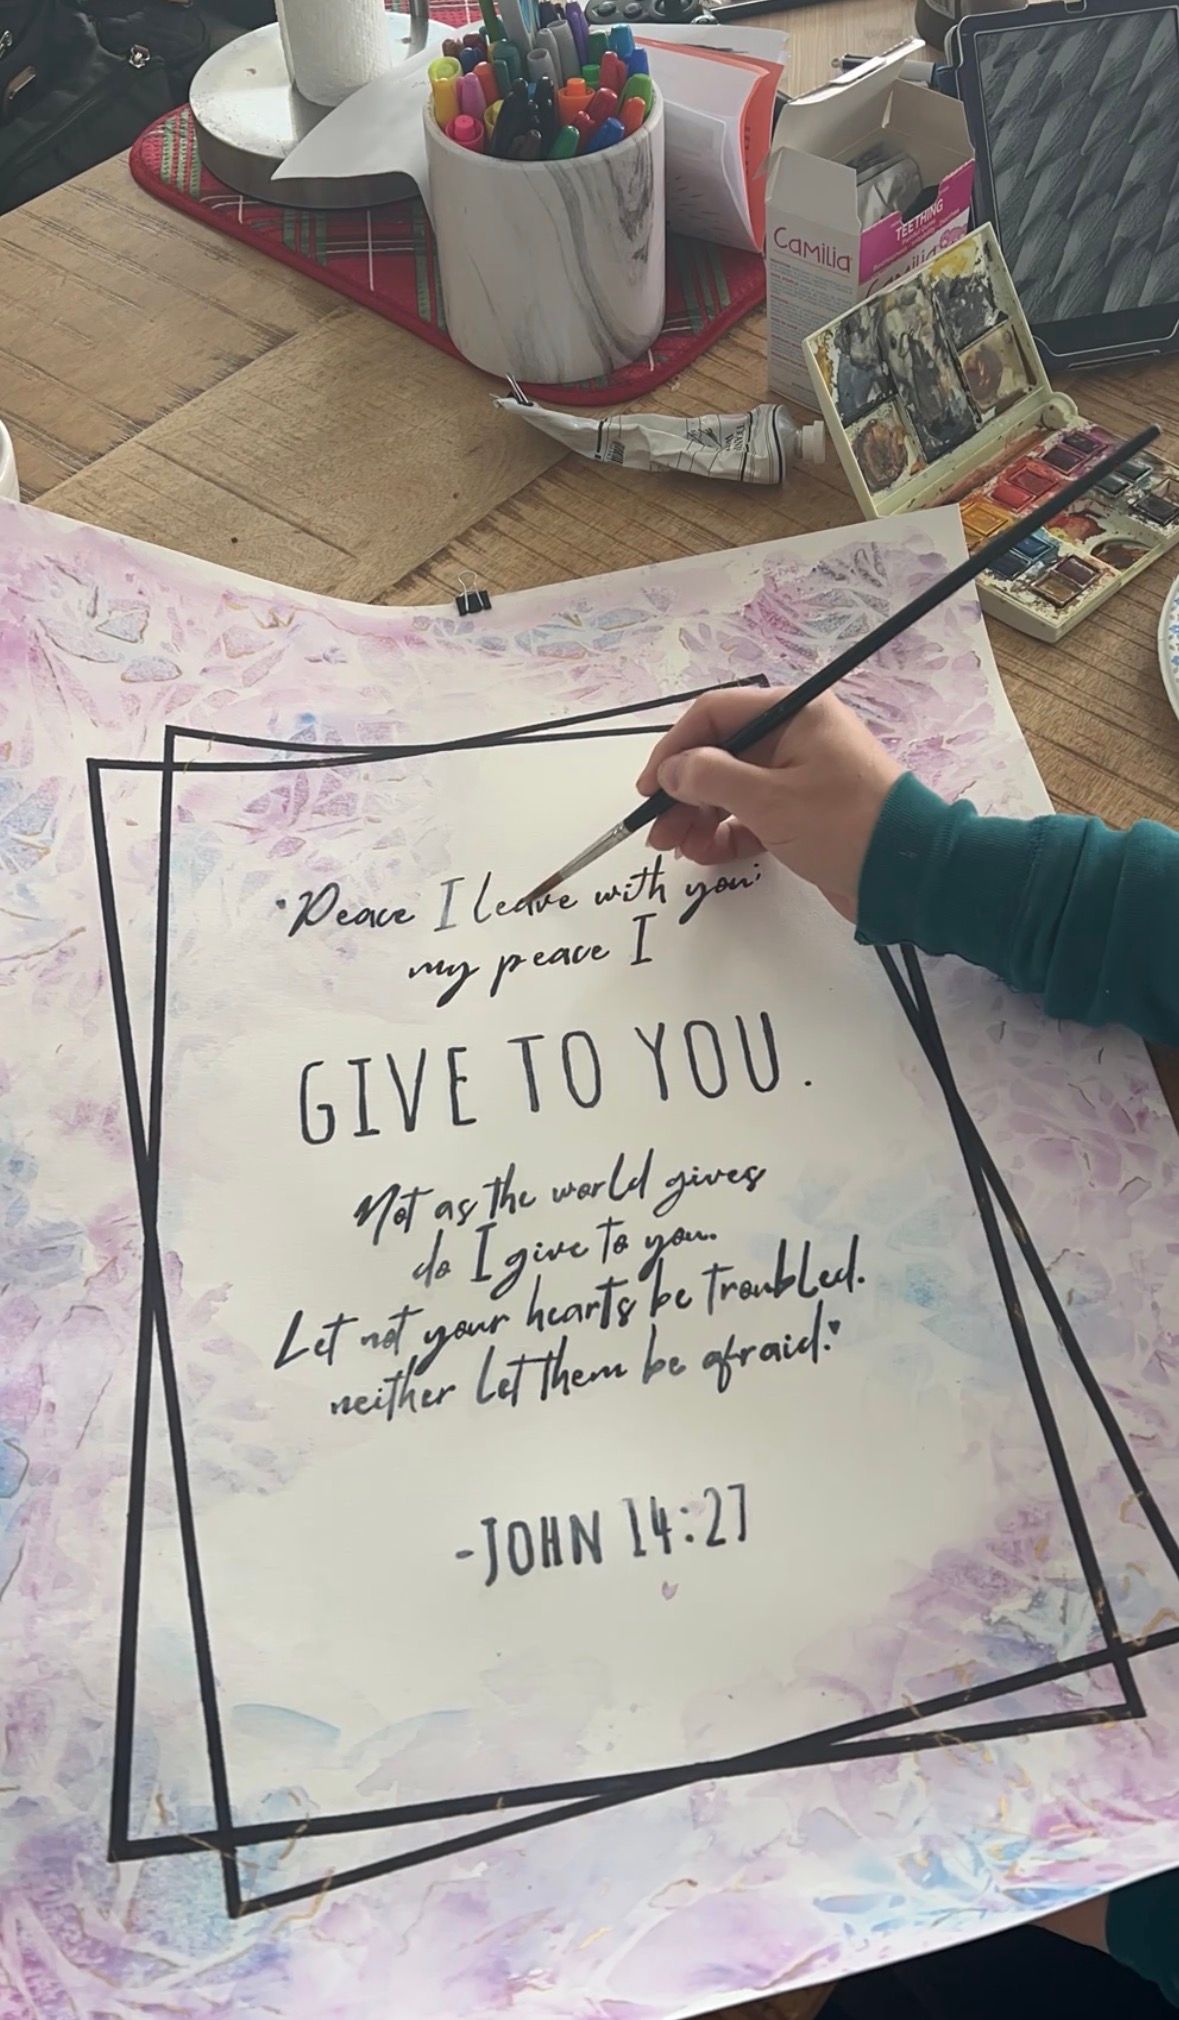 Camilia
TEETHING
Camilia
"Peace I leave with you;
my peace I
GIVE TO YOU.
Not as the world gives
do I give to you.
Let not your hearts be troubled.
neither let them be afraid."
-JOHN 14:27